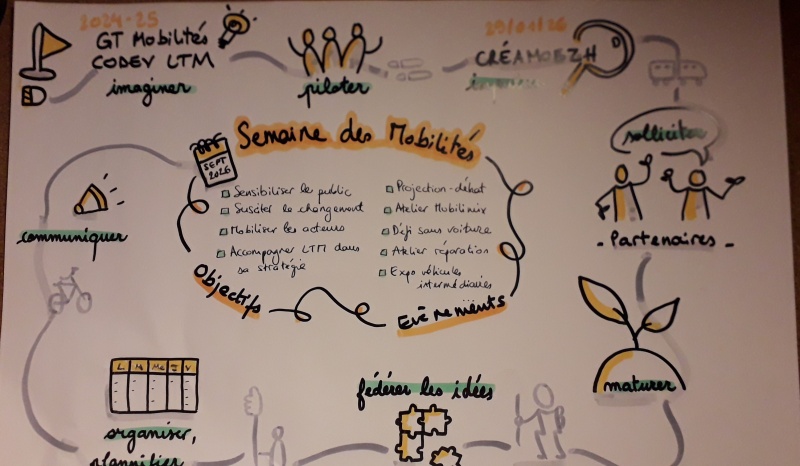 2024-25
GT Mobilités
CODEV LTM
imaginer
piloter
29/01/26
CRÉAMOEZH
solliciter
- Partenaires -
maturer
fédérer les idées
organiser,
plannifier
L M Me J V
communiquer
SEPT
2026
Semaine des Mobilités
Sensibiliser le public
Susciter le changement
Mobiliser les acteurs
Accompagner LTM dans
sa stratégie
Objectifs
Projection-débat
Atelier Mobilimix
Défi sans voiture
Atelier réparation
Expo véhicules
intermédiaires
Evènements